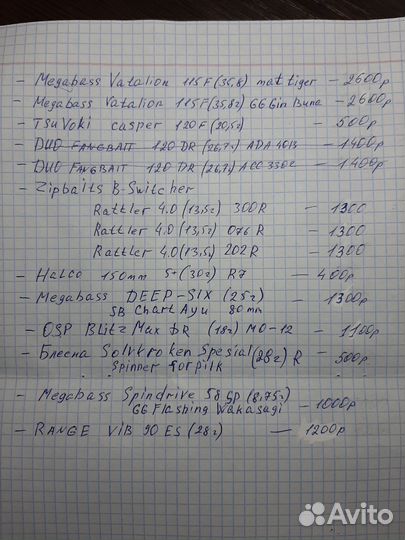 - Megabass Vatalion 115F(35,8) mat tiger - 2600р
- Megabass Vatalion 115F(35,8г) GG Gin Buna - 2600р
- TSUVOKI casper 120F(20,5г) - 500р
- DUO FANGBAIT 120 DR (26,7г) ADA 4013 - 1400р
- DUO FANGBAIT 120 DR (26,7г) ACC 3302 - 1400р
- Zipbaits B-Switcher
Rattler 4.0 (13,5г) 300R - 1300
Rattler 4.0 (13,5г) 076R - 1300
Rattler 4.0 (13,5г) 202R - 1300
- Halco 150mm 5+(30г) R7 - 400р
- Megabass DEEP-SIX (25г) - 1300р
SB Chart Ayu 80mm
- OSP Blitz Max DR (18г) MO-12 - 1100р
- Блесна Solvkroken Spesial (28г) R - 500р
Spinner forpilk
- Megabass Spindrive 58 SP (8,75г)
GG Flashing Wakasagi - 1000р
- RANGE VIB 90 ES (28г) - 1200р
Avito